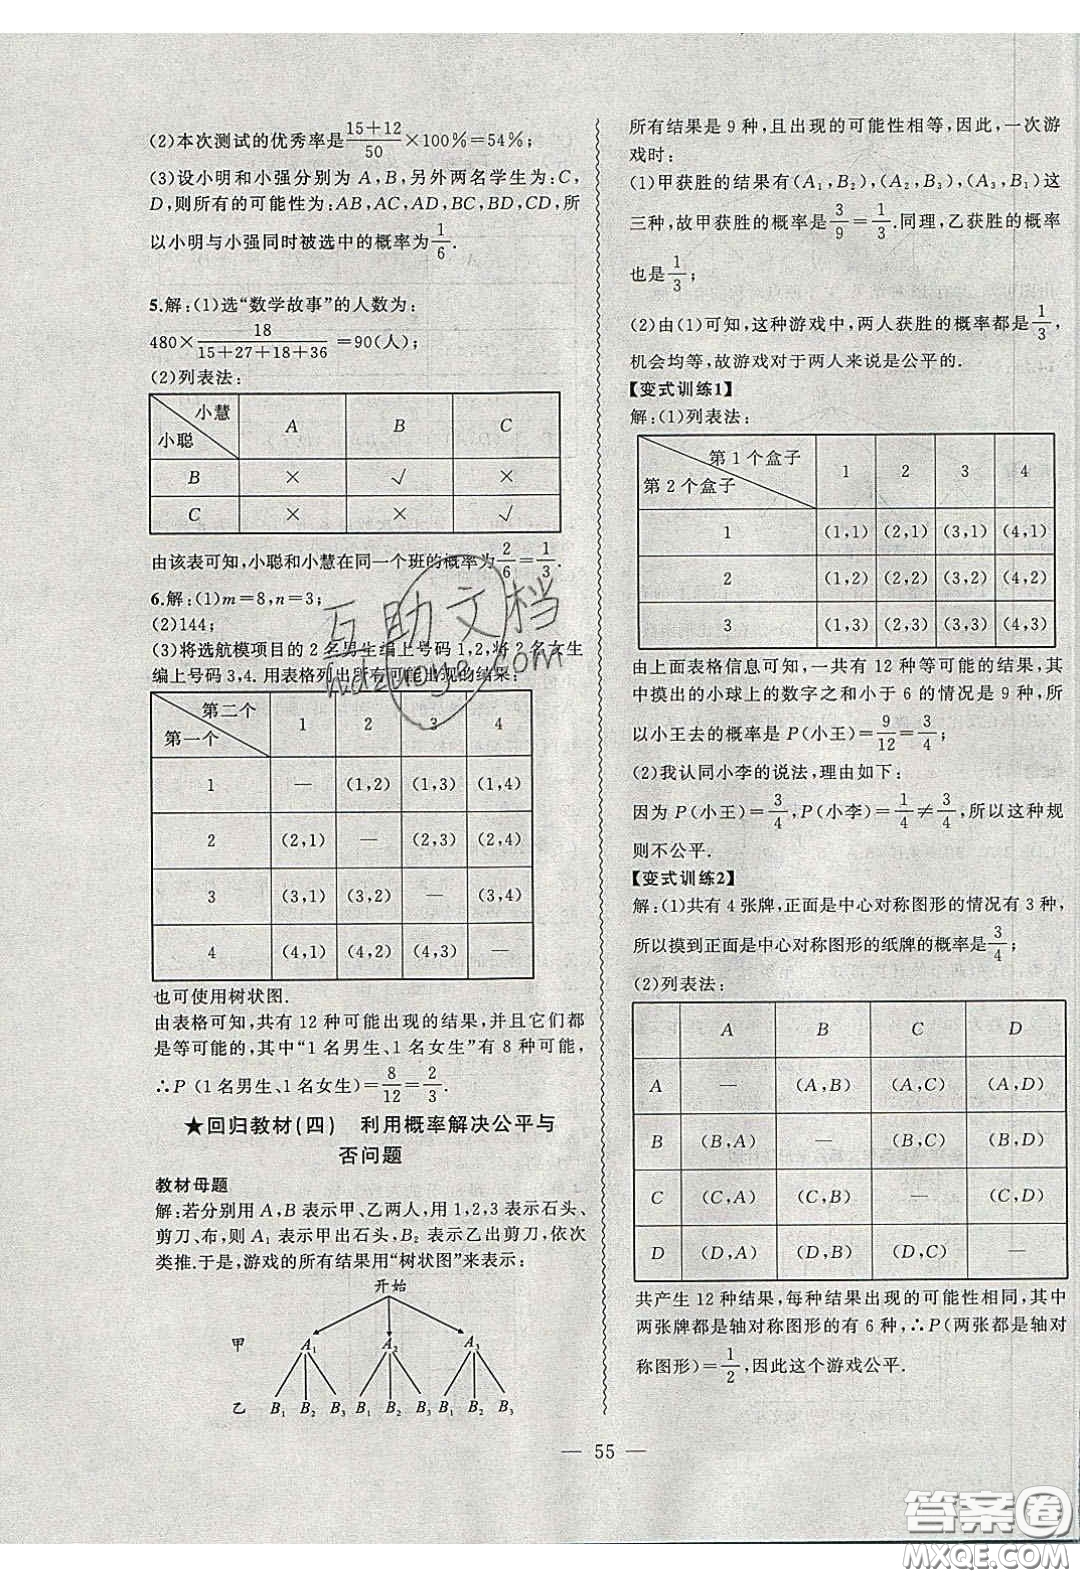 (2)本次测试的优秀率是(15+12)/50×100%=54%;
(3)设小明和小强分别为 A,B,另外两名学生为:C,
D,则所有的可能性为:AB,AC,AD,BC,BD,CD,所
以小明与小强同时被选中的概率为1/6.
5.解:(1)选“数学故事”的人数为:
480×18/(15+27+18+36)=90(人);
(2)列表法:
小慧 小聪 A B C
B × √ ×
C × × √
由该表可知,小聪和小慧在同一个班的概率为2/6=1/3.
6.解:(1)m=8,n=3;
(2)144;
(3)将选航模项目的 2 名男生编上号码 1,2,将 2 名女生
编上号码 3,4. 用表格列出所有可能出现的结果:
第二个 第一个 1 2 3 4
1 — (1,2) (1,3) (1,4)
2 (2,1) — (2,3) (2,4)
3 (3,1) (3,2) — (3,4)
4 (4,1) (4,2) (4,3) —
也可使用树状图.
由表格可知,共有 12 种可能出现的结果,并且它们都
是等可能的,其中“1 名男生、1 名女生”有 8 种可能,
∴P (1 名男生、1 名女生)=8/12=2/3.
★回归教材(四) 利用概率解决公平与
否问题
教材母题
解:若分别用 A,B 表示甲、乙两人,用 1,2,3 表示石头、
剪刀、布,则 A₁ 表示甲出石头,B₂ 表示乙出剪刀,依次
类推.于是,游戏的所有结果用“树状图”来表示:
开始
甲 A₁ A₂ A₃
乙 B₁ B₂ B₃ B₁ B₂ B₃ B₁ B₂ B₃
所有结果是 9 种,且出现的可能性相等,因此,一次游
戏时:
(1)甲获胜的结果有(A₁,B₂),(A₂,B₃),(A₃,B₁)这
三种,故甲获胜的概率是3/9=1/3.同理,乙获胜的概率
也是1/3;
(2)由(1)可知,这种游戏中,两人获胜的概率都是1/3,
机会均等,故游戏对于两人来说是公平的.
【变式训练1】
解:(1)列表法:
第 1 个盒子 第 2 个盒子 1 2 3 4
1 (1,1) (2,1) (3,1) (4,1)
2 (1,2) (2,2) (3,2) (4,2)
3 (1,3) (2,3) (3,3) (4,3)
由上面表格信息可知,一共有 12 种等可能的结果,其
中摸出的小球上的数字之和小于 6 的情况是 9 种,所
以小王去的概率是 P(小王)=9/12=3/4;
(2)我认同小李的说法,理由如下:
因为 P(小王)=3/4,P(小李)=1/4≠3/4,所以这种规
则不公平.
【变式训练2】
解:(1)共有 4 张牌,正面是中心对称图形的情况有 3 种,
所以摸到正面是中心对称图形的纸牌的概率是3/4;
(2)列表法:
A B C D
A — (A,B) (A,C) (A,D)
B (B,A) — (B,C) (B,D)
C (C,A) (C,B) — (C,D)
D (D,A) (D,B) (D,C) —
共产生 12 种结果,每种结果出现的可能性相同,其中
两张牌都是轴对称图形的有 6 种,∴P(两张都是轴对
称图形)=1/2,因此这个游戏公平.
— 55 —
互助文档
hdzuoye.com
答案圈
MXQE.COM